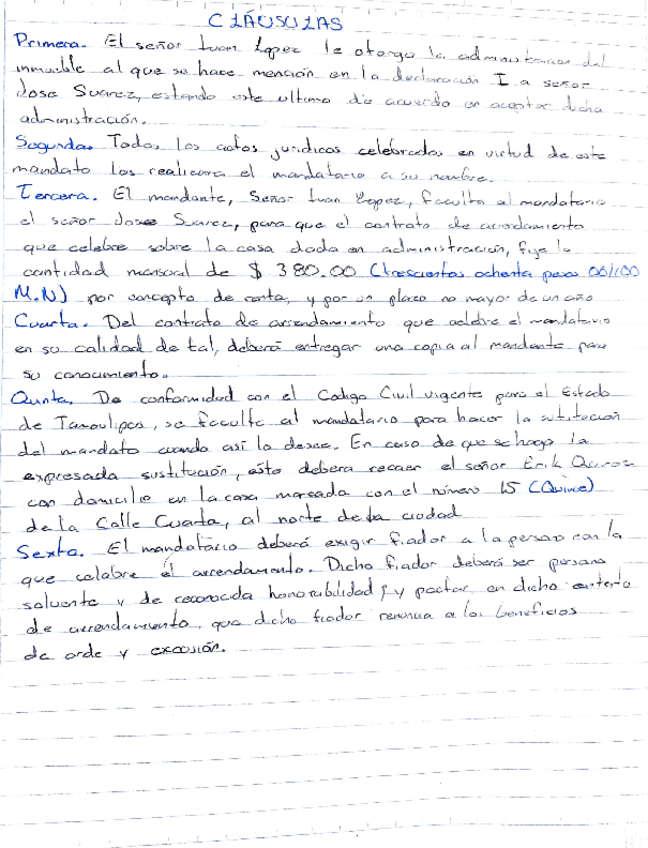 CLÁUSULAS
Primera. El señor Juan Lopez le otorga la administracion del
inmueble al que se hace mención en la declaración I a señor
Jose Suarez, estando este ultimo de acuerdo en aceptar dicha
administración.
Segunda. Todos los actos juridicos celebrados en virtud de este
mandato los realicera el mandatario a su nombre.
Tercera. El mandante, Señor Juan Lopez, faculta al mandatario
el señor Jose Suarez, para que el contrato de arrendamiento
que celebre sobre la casa dada en administración, fije la
cantidad mensual de $ 380.00 (trescientos ochenta pesos 00/100
M.N) por concepto de renta, y por un plazo no mayor de un año
Cuarta. Del contrato de arrendamiento que celebre el mandatario
en su calidad de tal, deberá entregar una copia al mandante para
su conocimiento.
Quinta. De conformidad con el Codigo Civil vigente para el Estado
de Tamaulipas, se faculta al mandatario para hacer la sutitucion
del mandato cuando asi lo desee. En caso de que se haga la
expresada sustitución, esto debera recaer el señor Erik
con domicilio en la casa marcada con el número 15 (Quince)
de la Calle Cuarta, al norte de la ciudad
Sexta. El mandatario deberá exigir fiador a la persona con la
que celabre el arrendamento. Dicho fiador deberá ser persona
solvente y de reconocida honorabilidad y pactar en dicho
de arrendamiento, que dicho fiador renuncia a los beneficios
de orde y excusión.